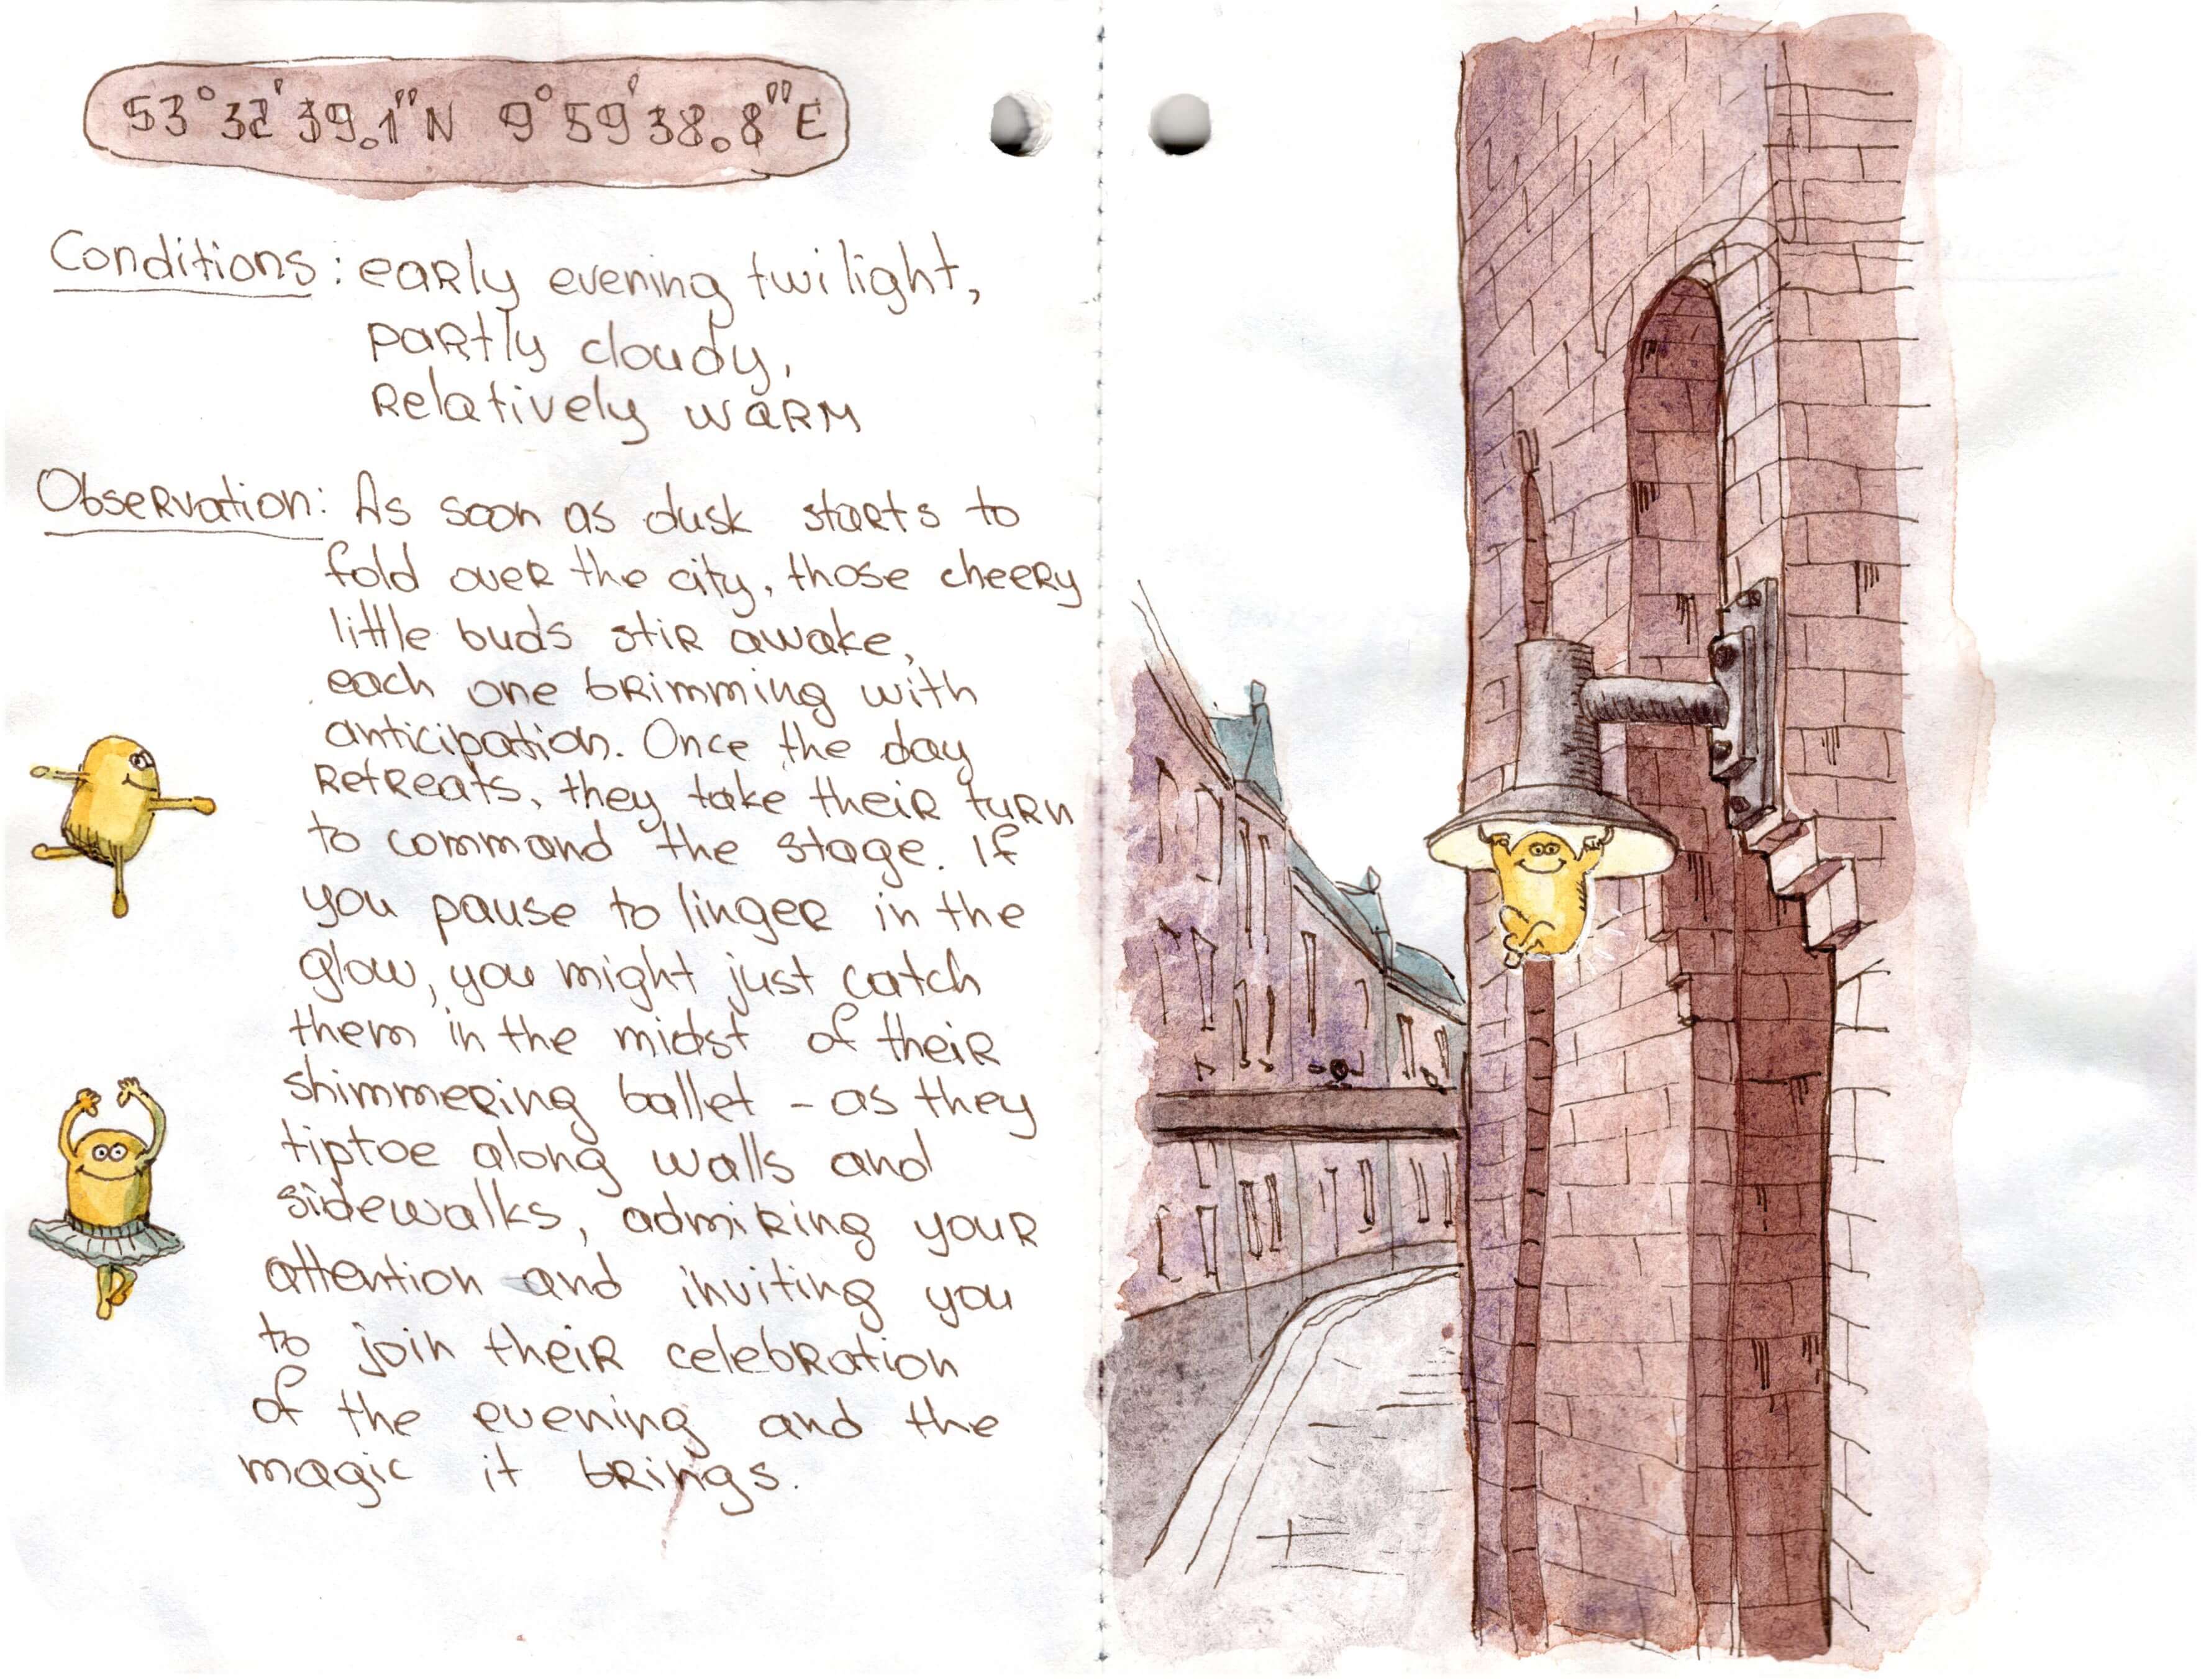 53°32'39.1"N 9°59'38.8"E
Conditions: early evening twilight,
partly cloudy,
relatively warm
Observation: As soon as dusk starts to
fold over the city, those cheery
little buds stir awake,
each one brimming with
anticipation. Once the day
retreats, they take their turn
to command the stage. If
you pause to linger in the
glow, you might just catch
them in the midst of their
shimmering ballet - as they
tiptoe along walls and
sidewalks, admiring your
attention and inviting you
to join their celebration
of the evening and the
magic it brings.